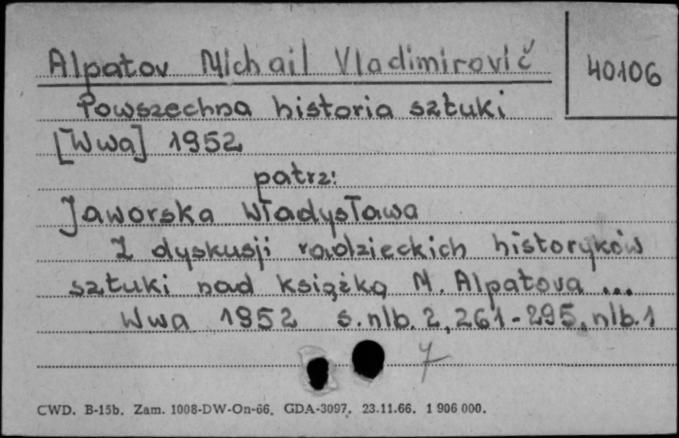 Alpatov Michail Vladimirovič
40106
Powszechna historia sztuki
[Wwa] 1952
patrz:
Jaworska Władysława
Z dyskusji radzieckich historyków
sztuki nad książką M. Alpatova ...
Wwa 1952 s. nlb. 2, 261-295, nlb. 1
7
CWD. B-15b. Zam. 1008-DW-On-66. GDA-3097. 23.11.66. 1 906 000.